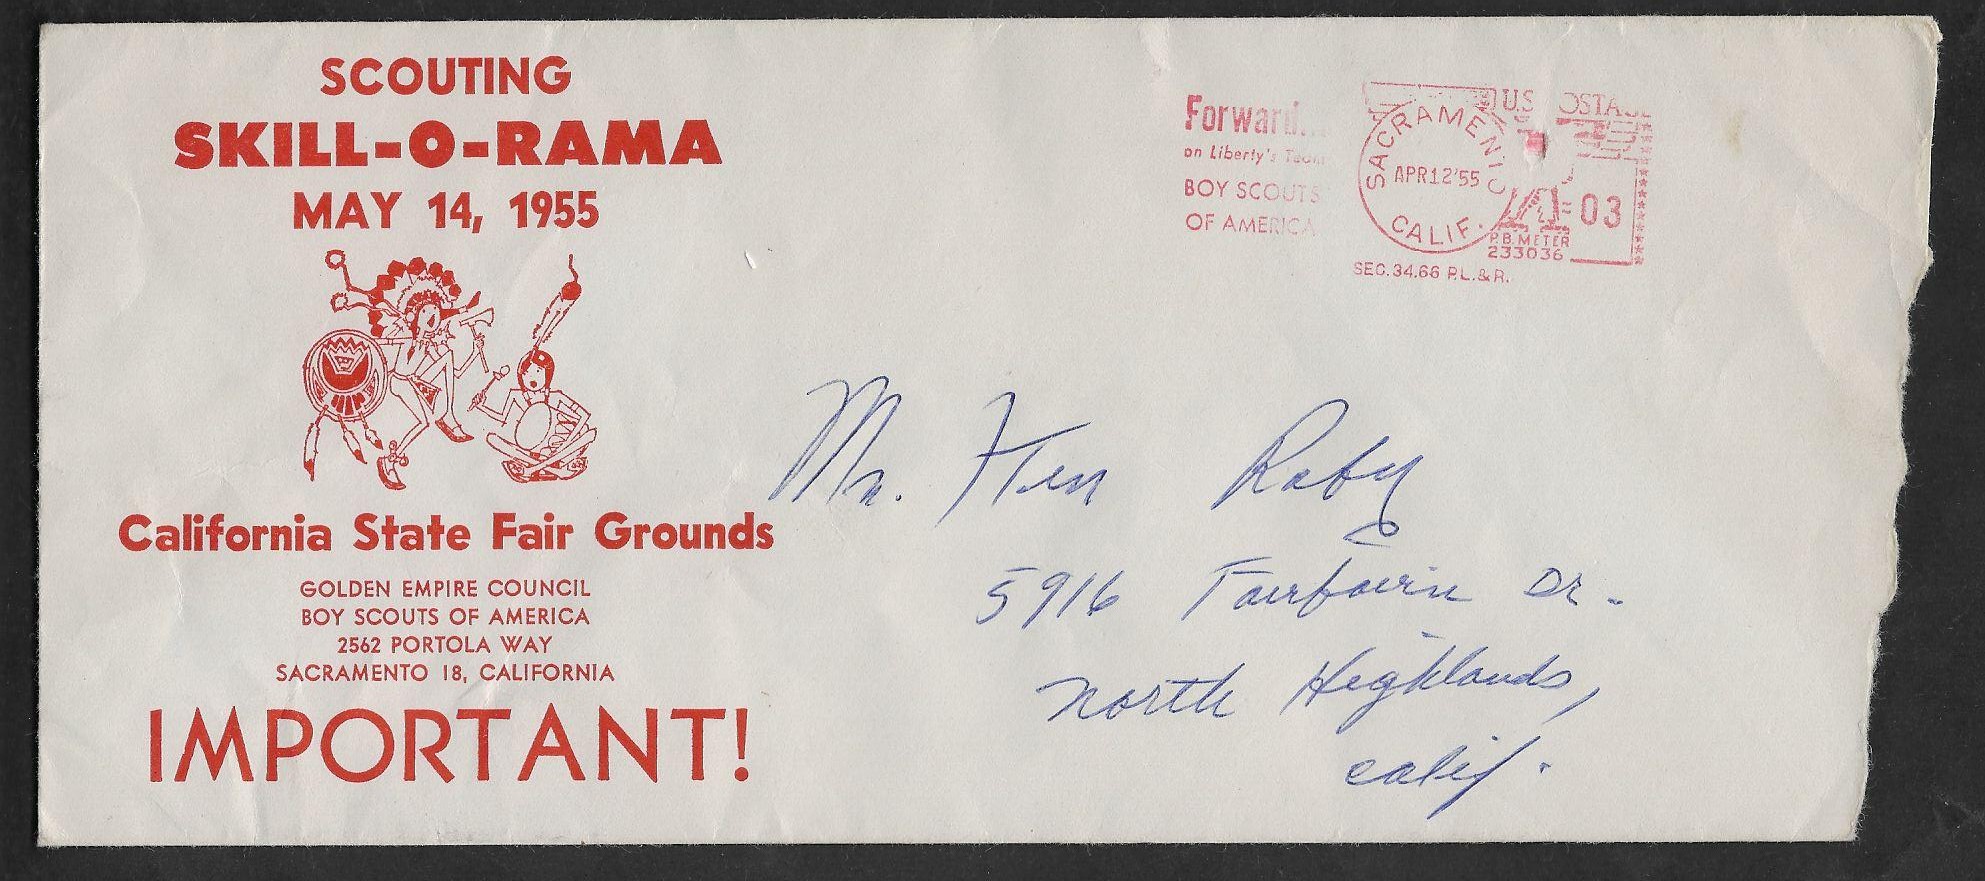 SCOUTING
SKILL-O-RAMA
MAY 14, 1955
California State Fair Grounds
GOLDEN EMPIRE COUNCIL
BOY SCOUTS OF AMERICA
2562 PORTOLA WAY
SACRAMENTO 18, CALIFORNIA
IMPORTANT!
Forward...
on Liberty's Team
BOY SCOUTS
OF AMERICA
SACRAMENTO
APR 12 '55
CALIF.
U.S. POSTAGE
03
P.B. METER
233036
SEC. 34.66 P.L.&R.
Mr. Roby
5916 Dr.
North Highlands,
Calif.